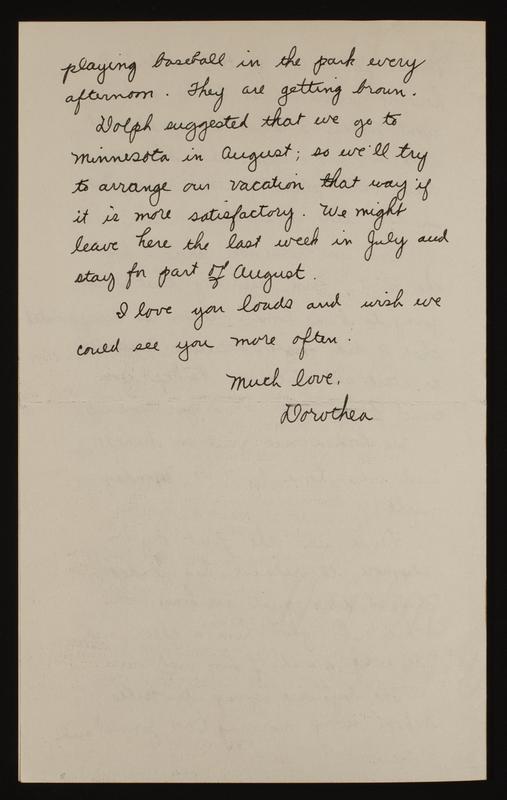 playing baseball in the park every
afternoon. They are getting brown.
Dolph suggested that we go to
Minnesota in August; so we'll try
to arrange our vacation that way if
it is more satisfactory. We might
leave here the last week in July and
stay for part of August.
I love you loads and wish we
could see you more often.
Much love,
Dorothea